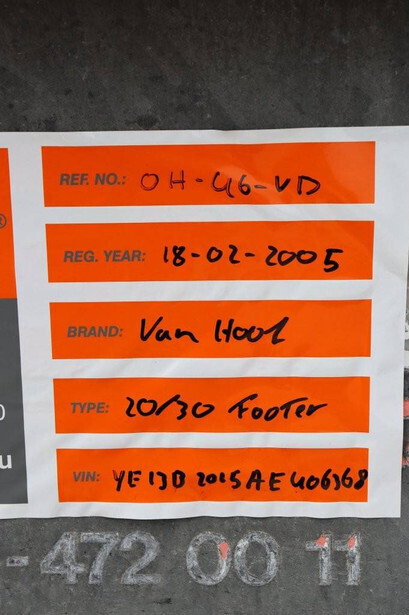 ®
REF. NO.: OH-46-VD
REG. YEAR: 18-02-2005
BRAND: Van Hool
TYPE: 20/30 Footer
0
u
VIN: YE13D2015AE406368
-472 00 11